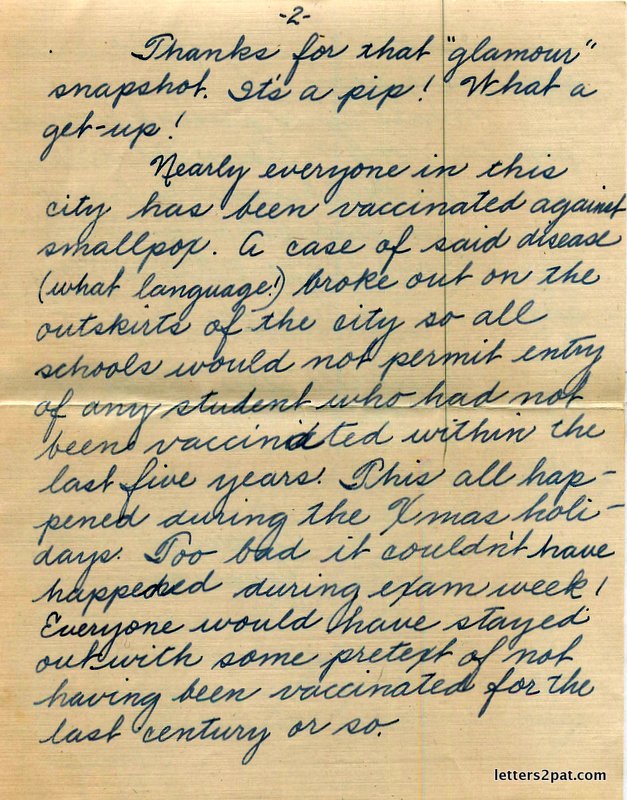 -2-
Thanks for that "glamour"
snapshot. It's a pip! What a
get-up!
Nearly everyone in this
city has been vaccinated against
smallpox. A case of said disease
(what language!) broke out on the
outskirts of the city so all
schools would not permit entry
of any student who had not
been vaccinated within the
last five years. This all hap-
pened during the Xmas holi-
days. Too bad it couldn't have
happened during exam week!
Everyone would have stayed
out with some pretext of not
having been vaccinated for the
last century or so.
letters2pat.com